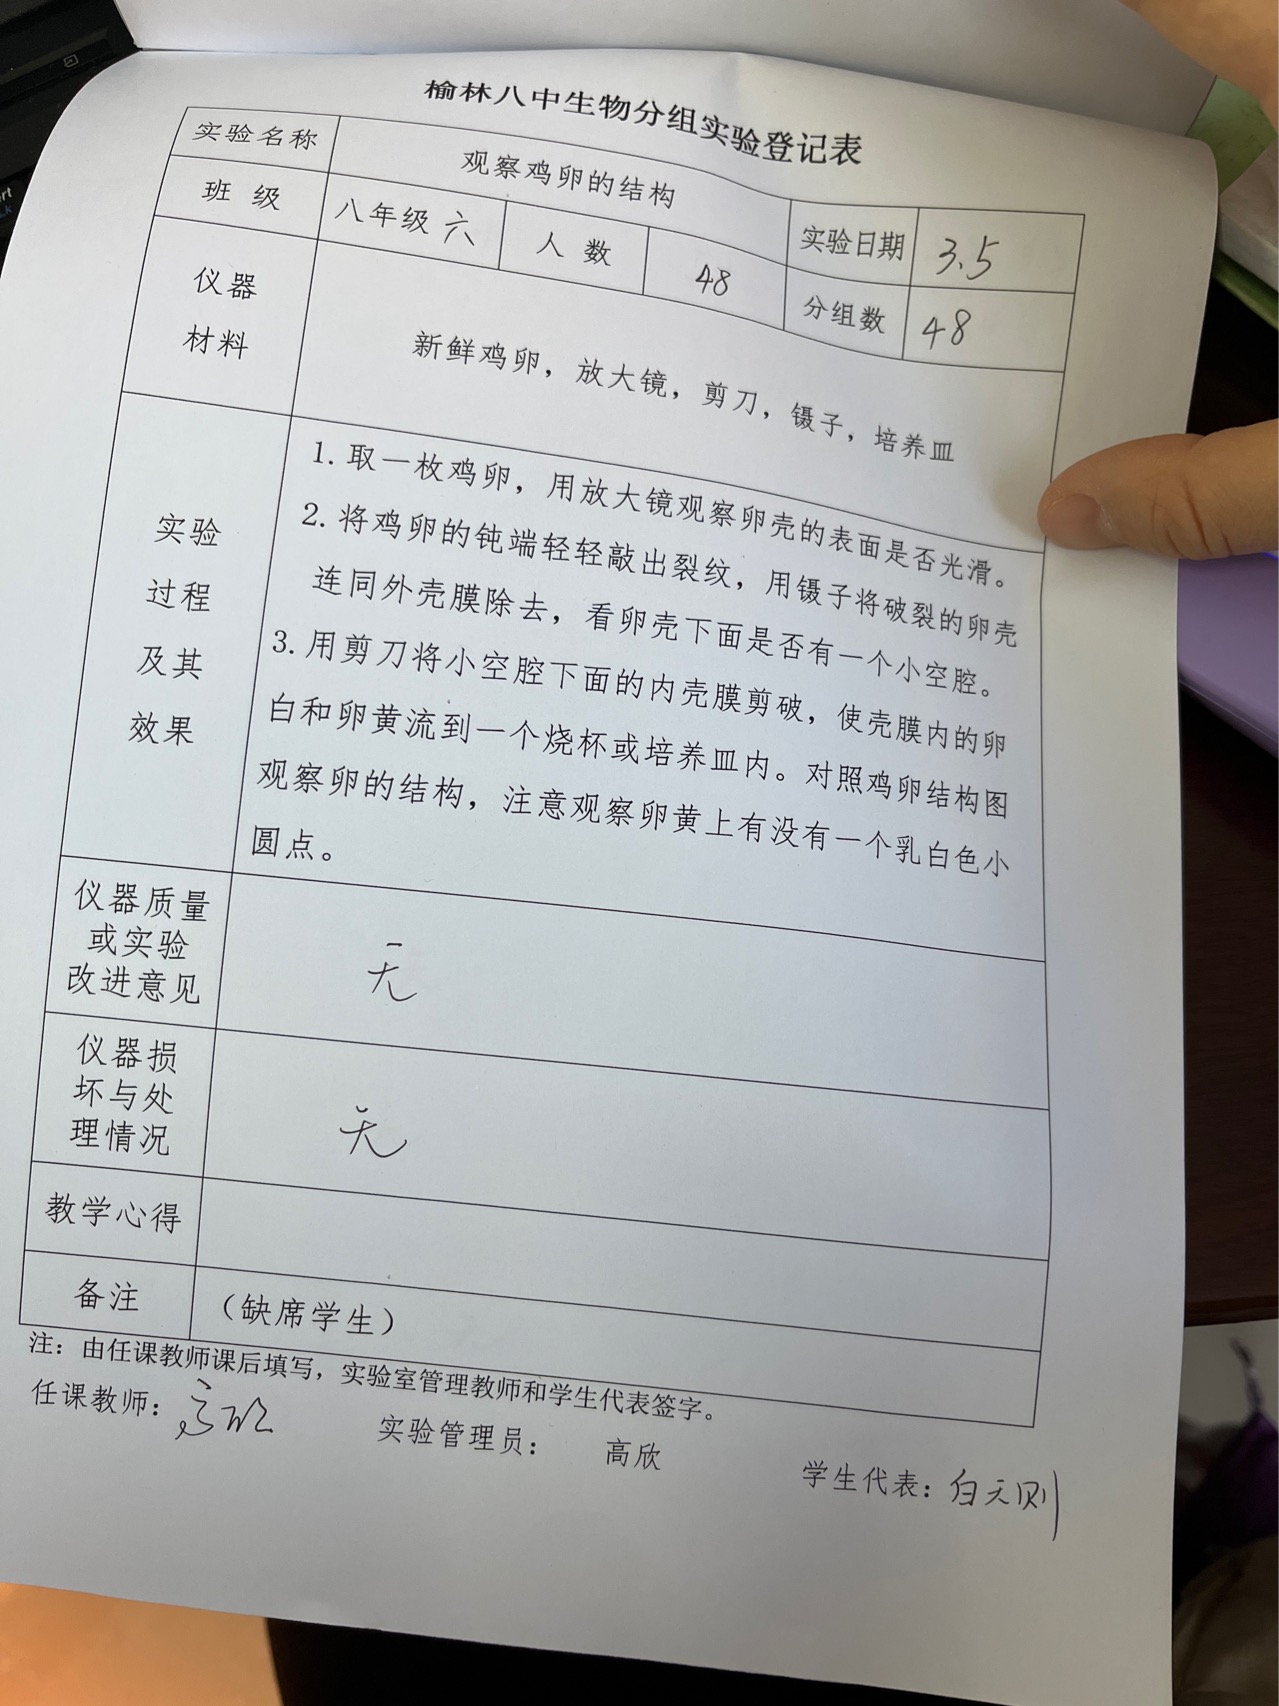 榆林八中生物分组实验登记表
实验名称 观察鸡卵的结构 实验日期 3.5
班 级 八年级 六 人 数 48 分组数 48
仪器
材料
新鲜鸡卵，放大镜，剪刀，镊子，培养皿
实验
过程
及其
效果
1.取一枚鸡卵，用放大镜观察卵壳的表面是否光滑。
2.将鸡卵的钝端轻轻敲出裂纹，用镊子将破裂的卵壳
连同外壳膜除去，看卵壳下面是否有一个小空腔。
3.用剪刀将小空腔下面的内壳膜剪破，使壳膜内的卵
白和卵黄流到一个烧杯或培养皿内。对照鸡卵结构图
观察卵的结构，注意观察卵黄上有没有一个乳白色小
圆点。
仪器质量
或实验
改进意见
无
仪器损
坏与处
理情况
无
教学心得
备注 （缺席学生）
注：由任课教师课后填写，实验室管理教师和学生代表签字。
任课教师：高欣 实验管理员： 高欣 学生代表：白元则